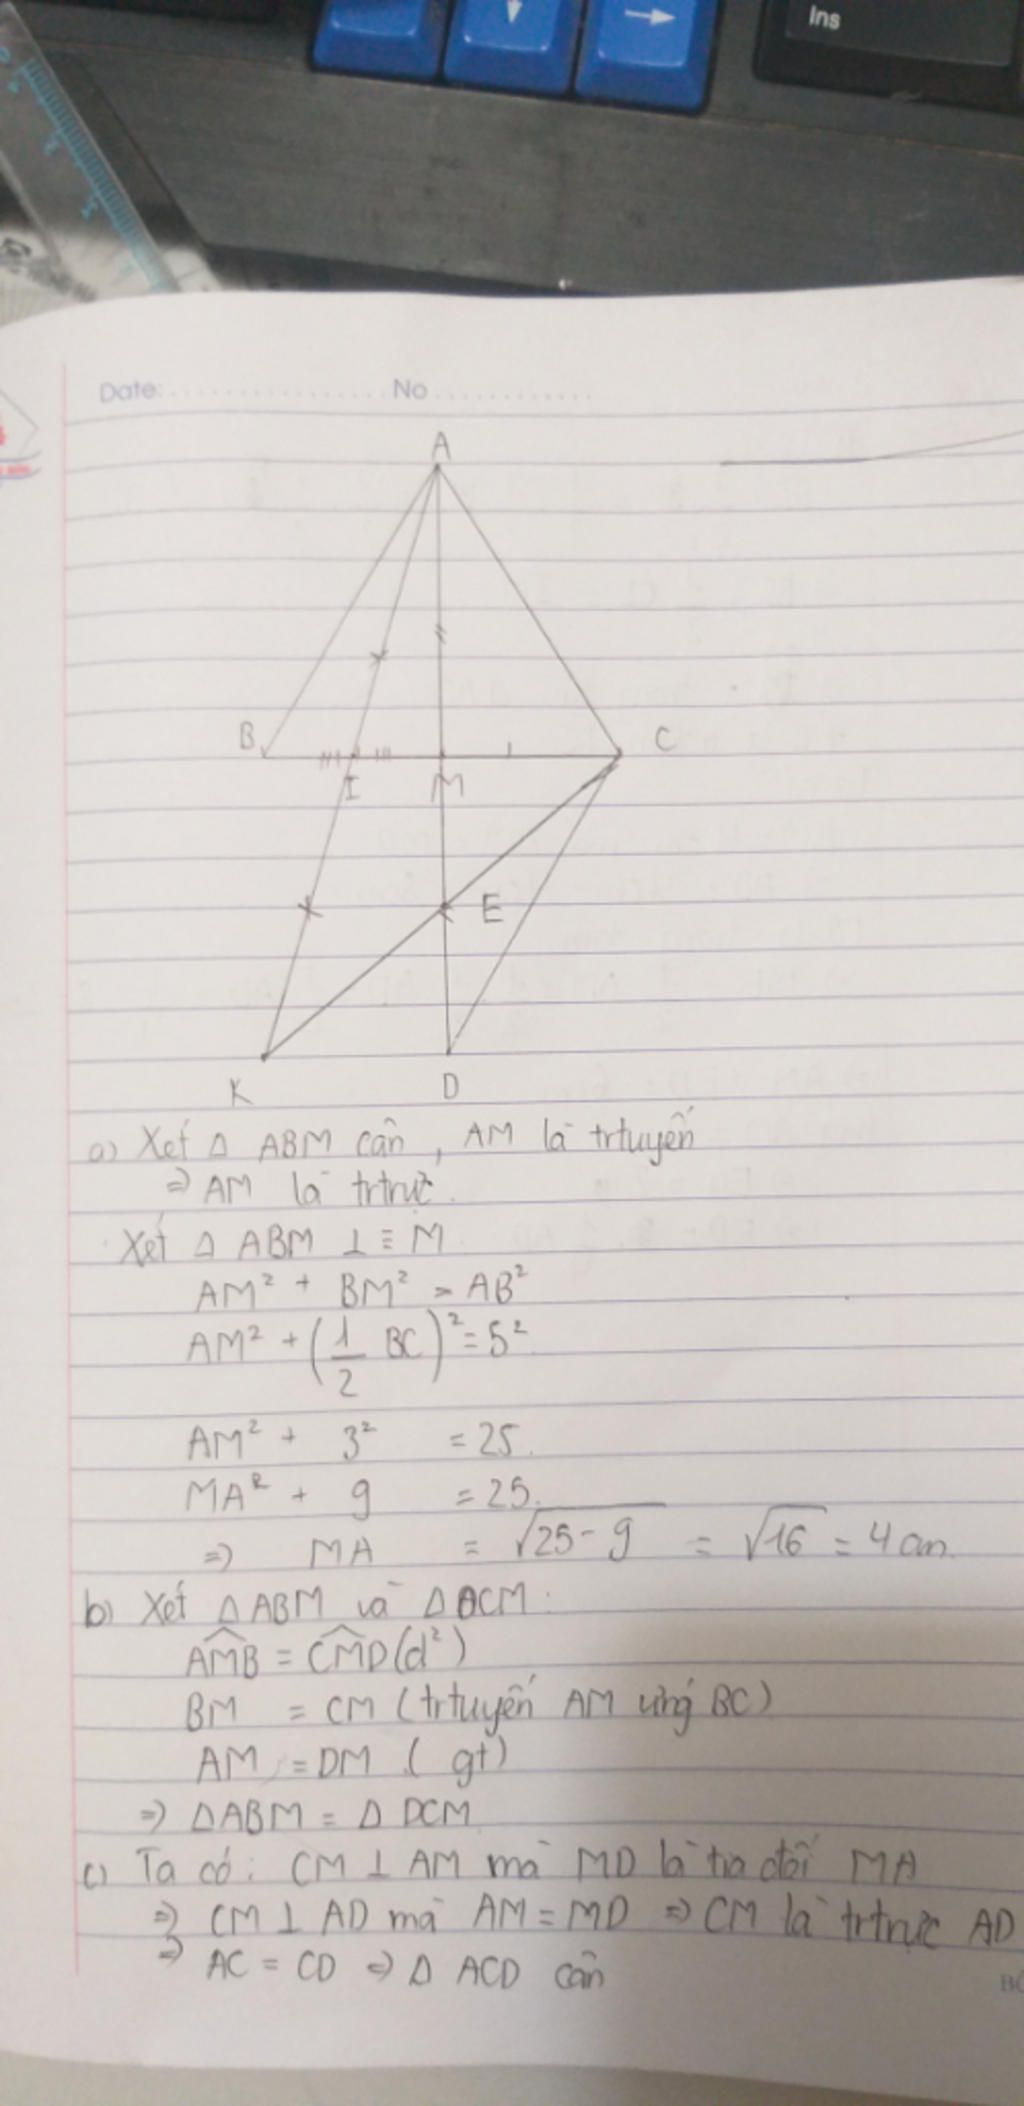 Ins
Date: No
A
B
C
I
M
E
K
D
a) Xét Δ ABM cân, AM là trtuyến
⇒ AM là trtrực.
Xét Δ ABM ⊥ ≡ M
AM² + BM² = AB²
AM² + (1/2 BC)² = 5²
AM² + 3² = 25.
MA² + 9 = 25.
⇒ MA = √25-9 = √16 = 4 cm.
b) Xét Δ ABM và Δ DCM:
AMB = CMD (đ²)
BM = CM (trtuyến AM ứng BC)
AM = DM (gt)
⇒ Δ ABM = Δ DCM
c) Ta có: CM ⊥ AM mà MD là tia đối MA
⇒ CM ⊥ AD mà AM = MD ⇒ CM là trtrực AD
⇒ AC = CD ⇒ Δ ACD cân